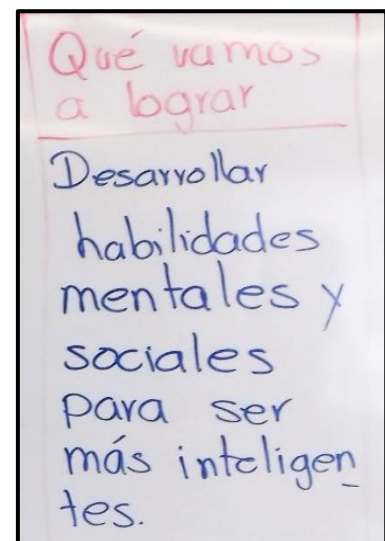 Qué vamos
a lograr
Desarrollar
habilidades
mentales y
sociales
para ser
más inteligen
tes.